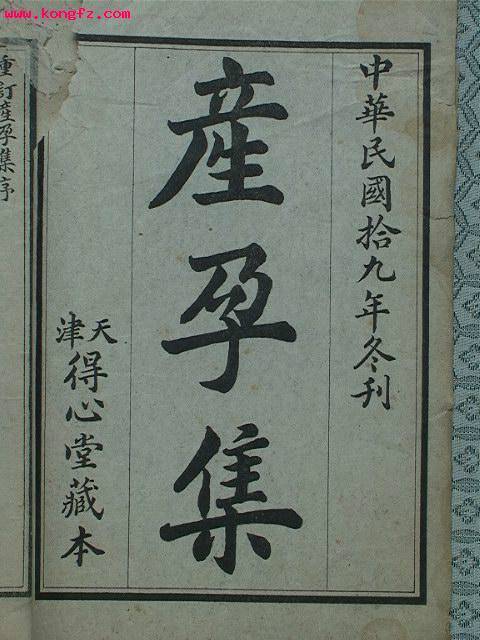 www.kongfz.com
中華民國拾九年冬刊
產孕集
天津
得心堂藏本
重訂產孕集序